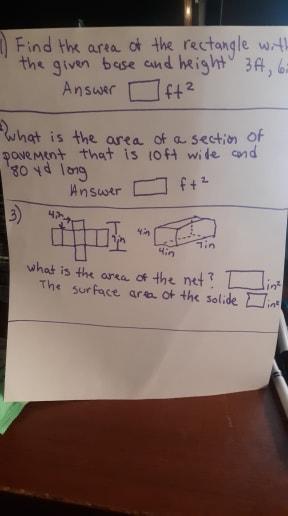 1) Find the area of the rectangle with
the given base and height 3ft, 6
Answer ft²
2) what is the area of a section of
pavement that is 10ft wide and
80 yd long
Answer ft²
3) 4in 7in 4in 4in 7in
what is the area of the net? in²
The surface area of the solide in²